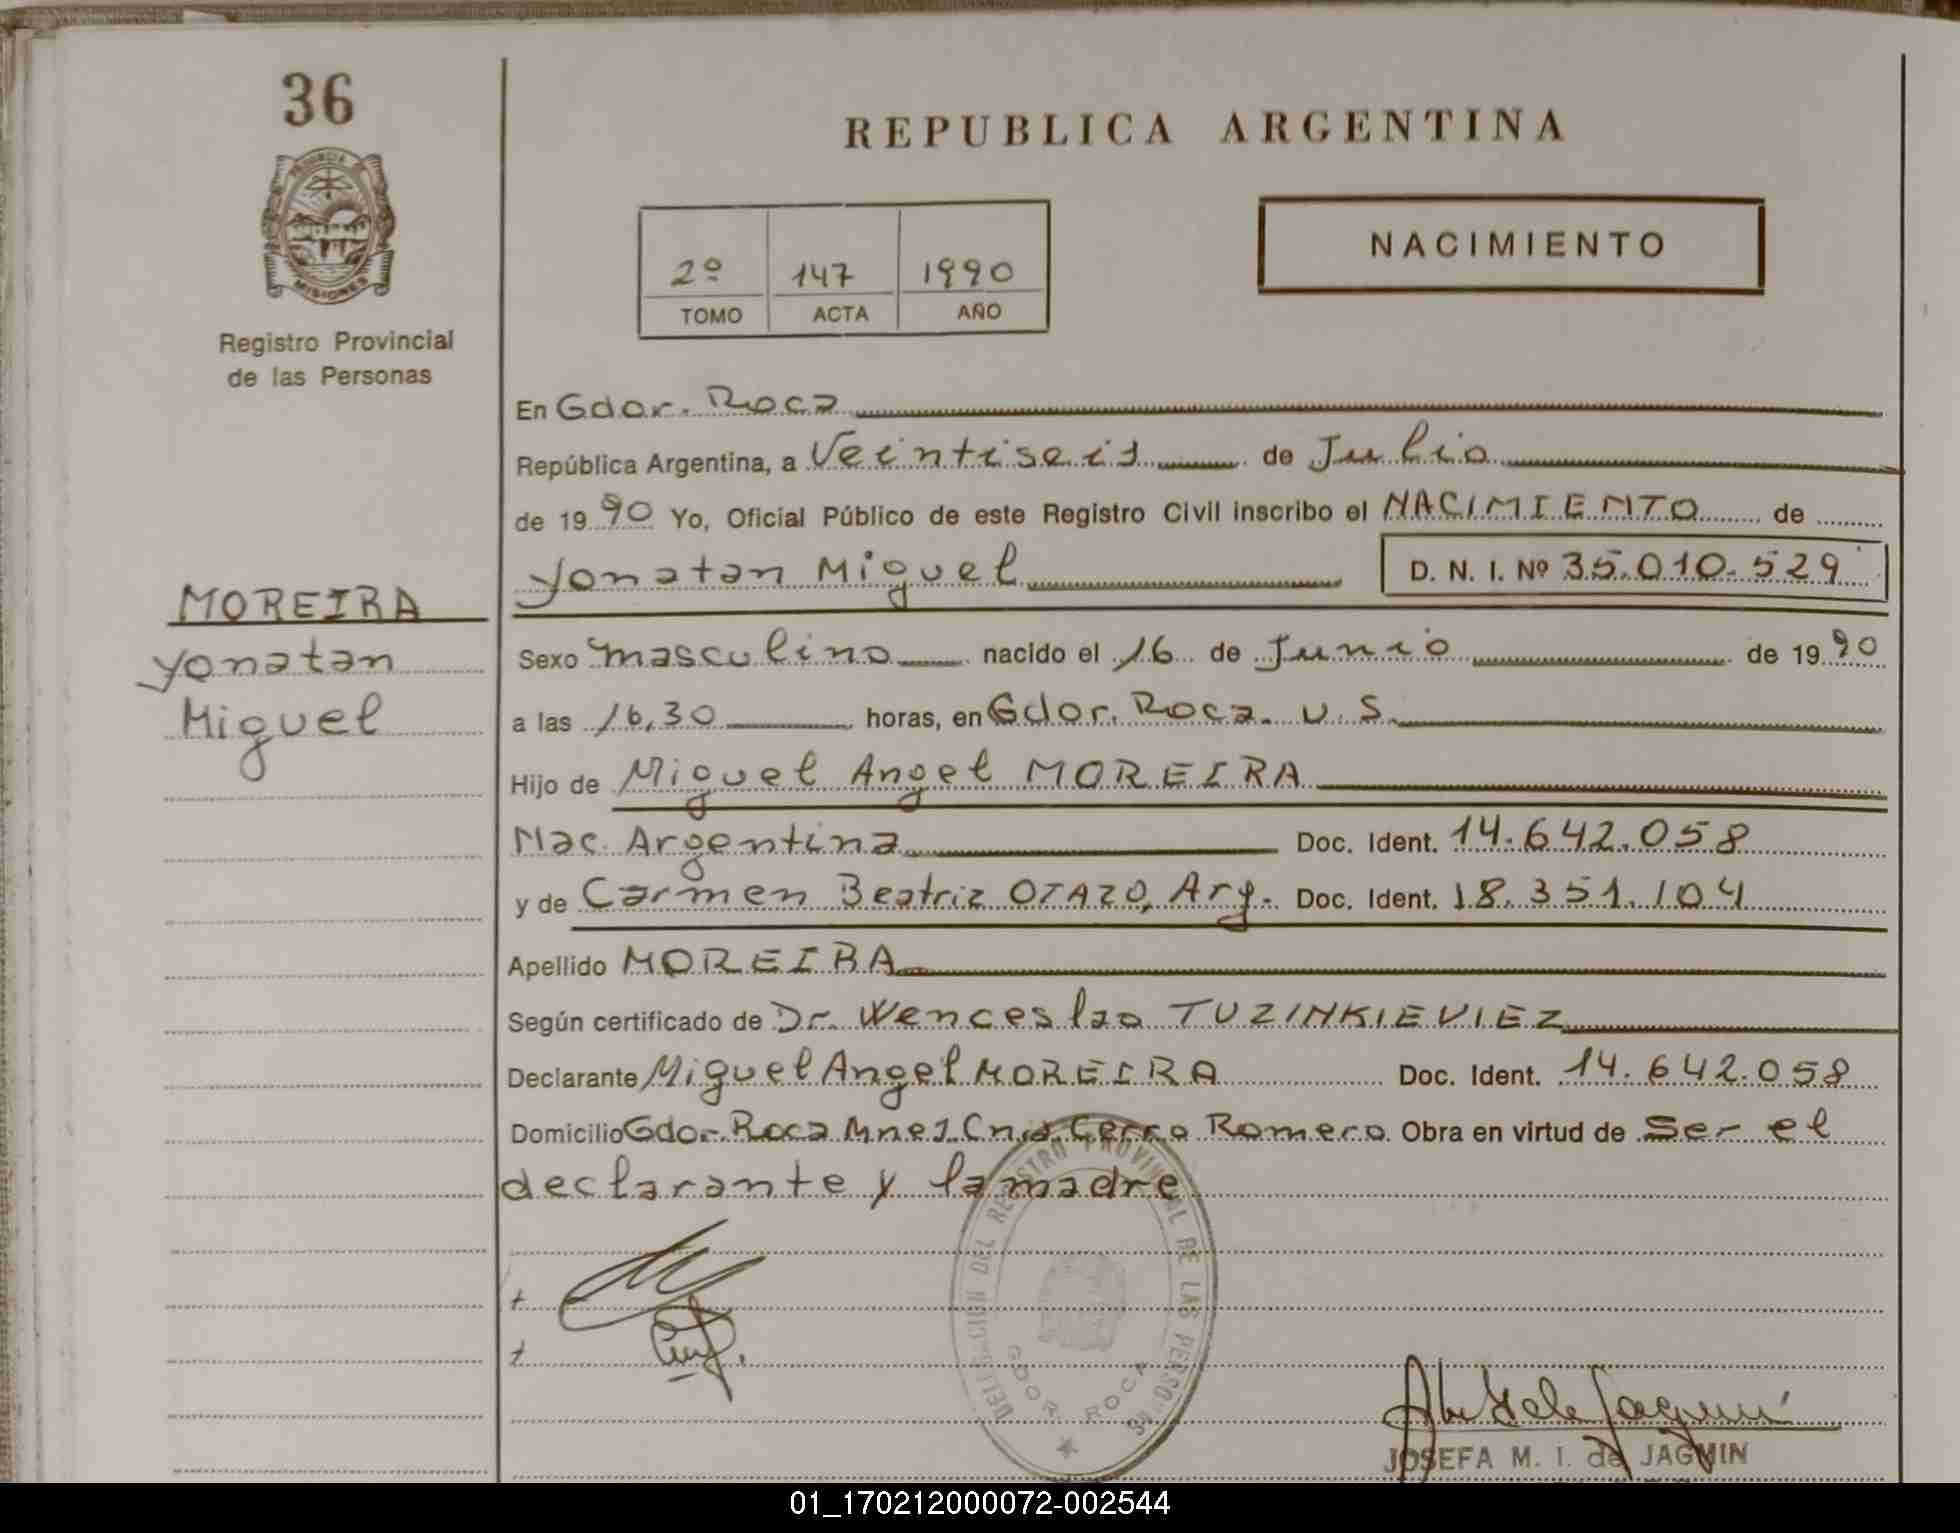 36
PROVINCIA
MISIONES
Registro Provincial
de las Personas
MOREIRA
Yonatan
Miguel
REPUBLICA ARGENTINA
2º 147 1990
TOMO ACTA AÑO
NACIMIENTO
En Gdor. Roca
República Argentina, a Veintiseis de Julio
de 1990 Yo, Oficial Público de este Registro Civil inscribo el NACIMIENTO de
Yonatan Miguel D. N. I. Nº 35.010.529
Sexo masculino nacido el 16 de Junio de 1990
a las 16,30 horas, en Gdor. Roca. U.S.
Hijo de Miguel Angel MOREIRA
Nac. Argentina Doc. Ident. 14.642.058
y de Carmen Beatriz OTAZO, Arg. Doc. Ident. 18.351.104
Apellido MOREIRA
Según certificado de Dr. Wenceslao TUZINKIEVIEZ
Declarante Miguel Angel MOREIRA Doc. Ident. 14.642.058
Domicilio Gdor. Roca Mnes. Cnia. Cerro Romero Obra en virtud de Ser el
declarante y la madre
DELEGACION DEL REGISTRO PROVINCIAL DE LAS PERSONAS
GDOR. ROCA
JOSEFA M. I. de JAGMIN
01_170212000072-002544